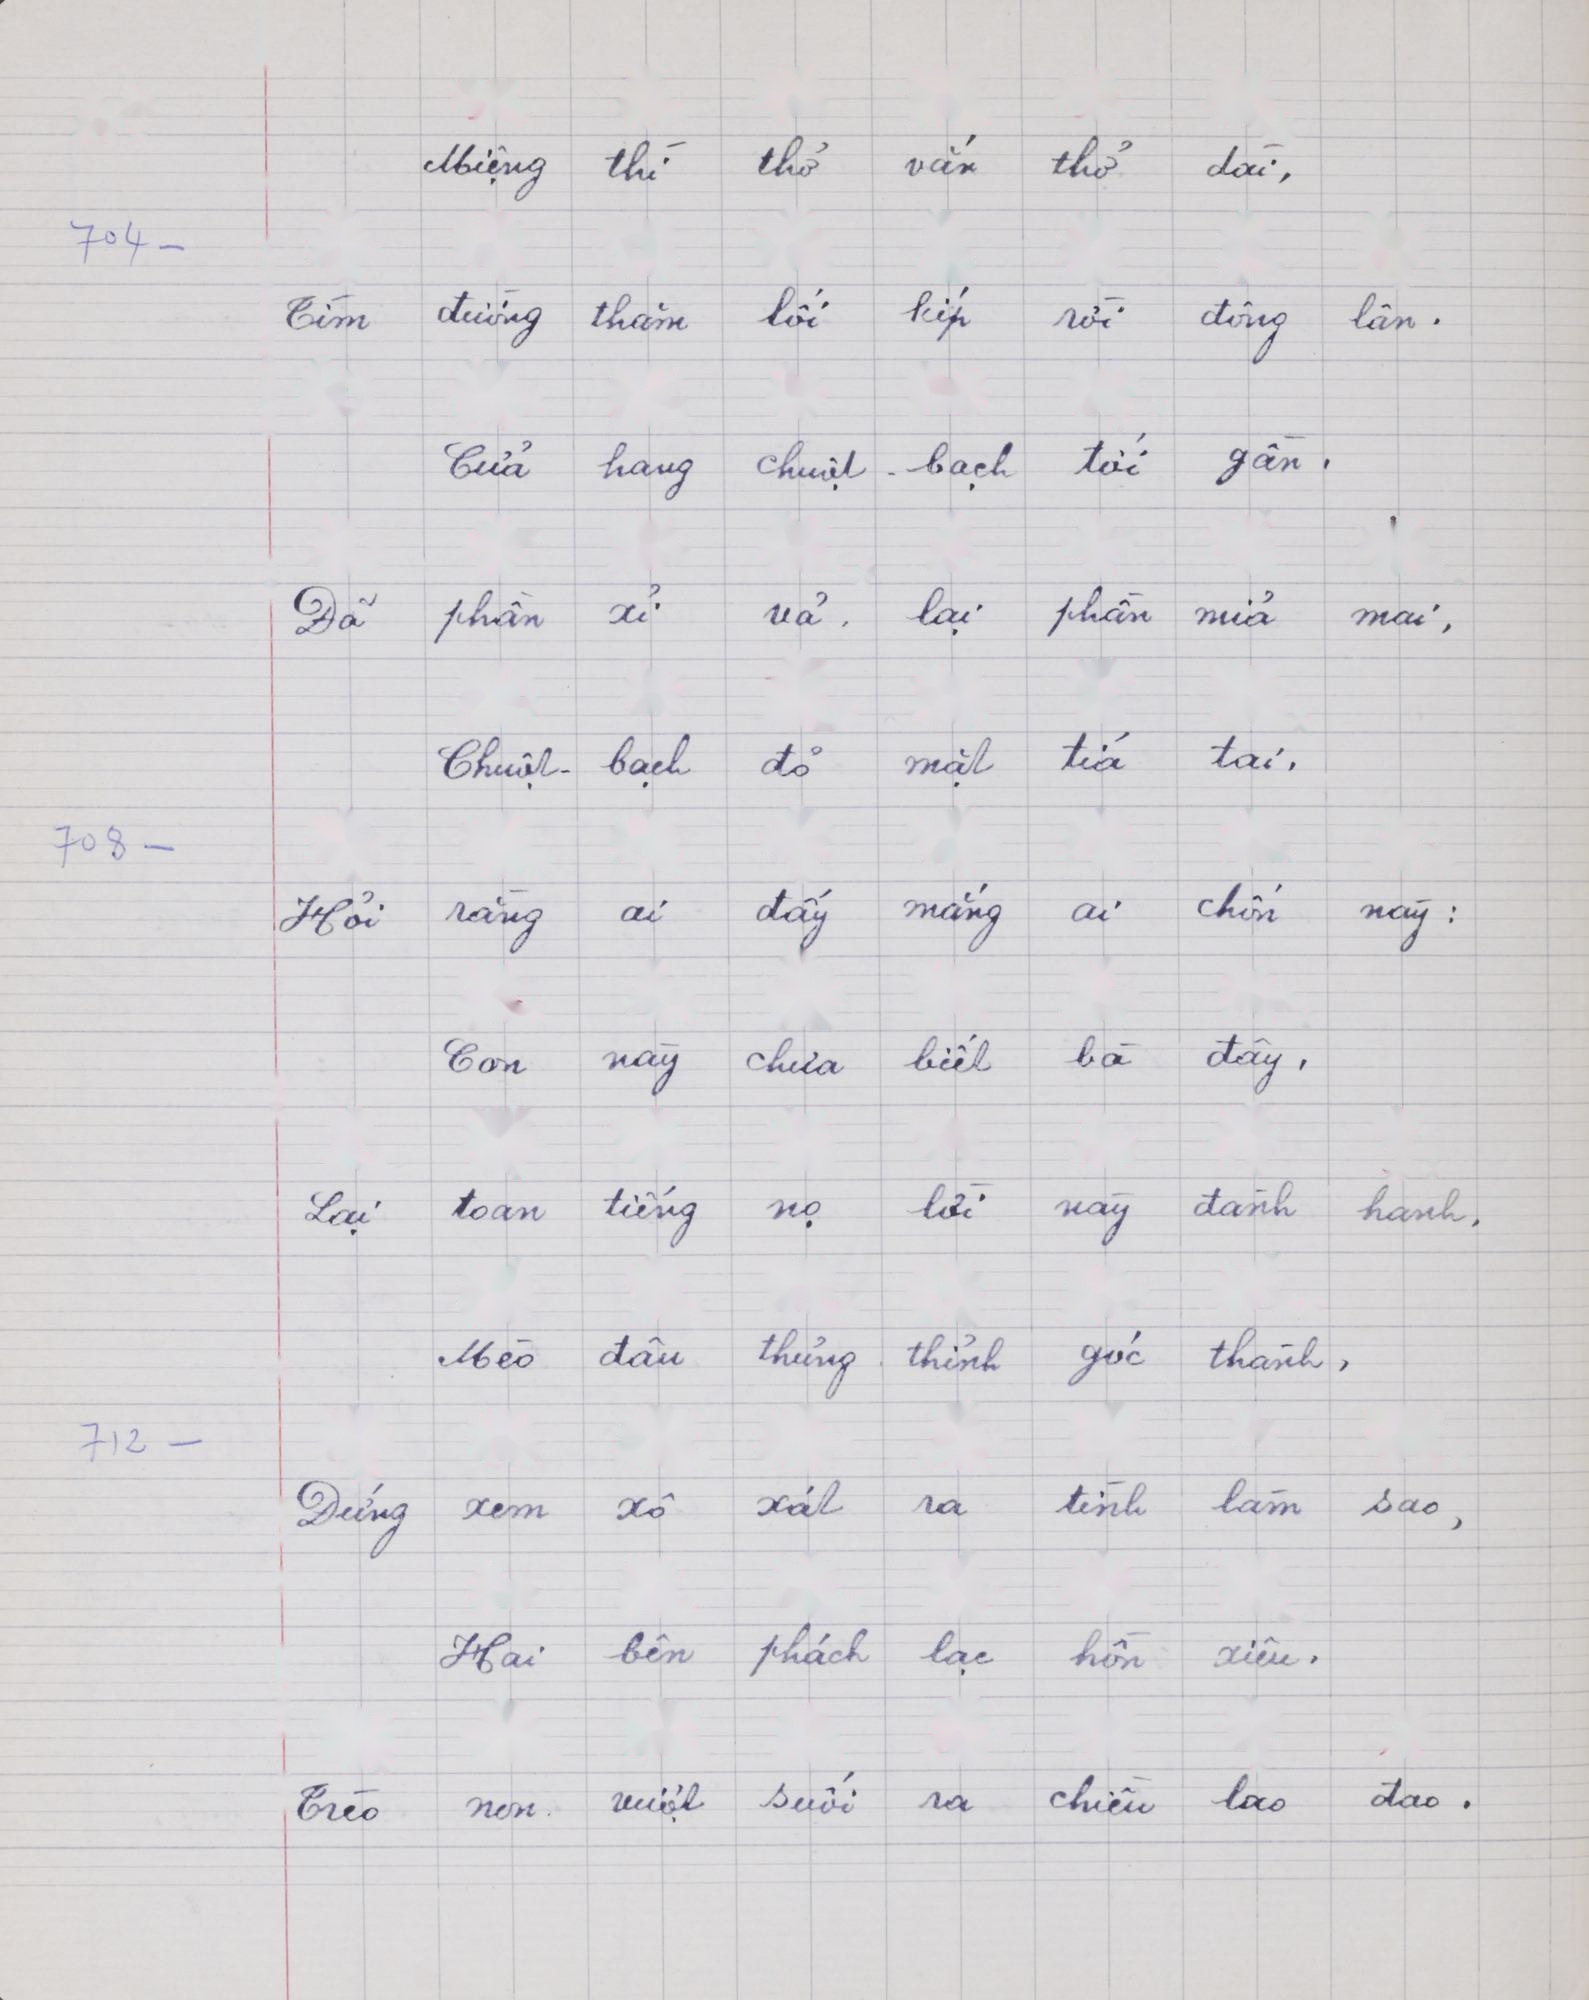 Miệng thì thở vắn thở dài,
704 –
Tìm đường thăm lối kíp rời đông lân.
Cửa hang chuột - bạch tới gần,
Đã phần xỉ vả, lại phần mỉa mai,
Chuột - bạch đỏ mặt tía tai,
708 –
Hỏi rằng ai đấy mắng ai chốn này:
Con này chưa biết bà đây,
Lại toan tiếng nọ lời này đành hanh,
Mèo đâu thủng thỉnh góc thành,
712 –
Đứng xem xô xát ra tình làm sao,
Hai bên phách lạc hồn xiêu,
Trèo non vượt suối ra chiều lao đao.